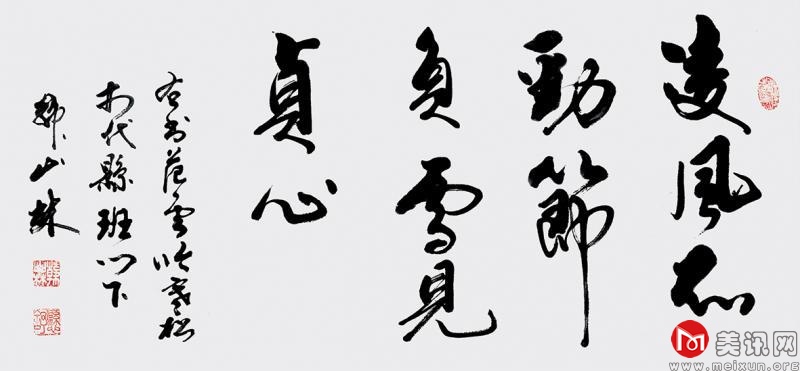 凌風知
勁節
負雪見
貞心
右書范雲詠寒松
於代縣班門下
山林
美讯网
www.meixun.org